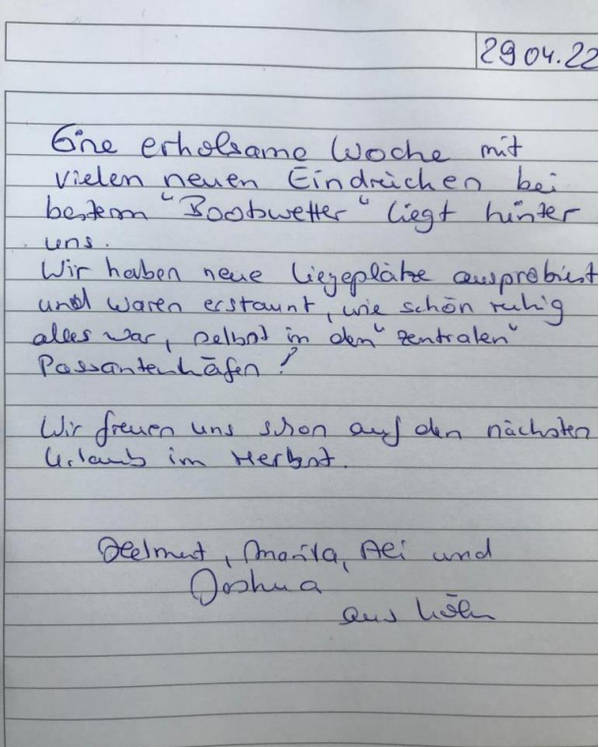 29 04.22
Eine erholsame Woche mit
vielen neuen Eindrücken bei
bestem "Bootswetter" liegt hinter
uns.
Wir haben neue Liegeplätze ausprobiert
und waren erstaunt, wie schön ruhig
alles war, selbst in den "zentralen"
Passantenhäfen!
Wir freuen uns schon auf den nächsten
Urlaub im Herbst.
Helmut, Marita, und
Joshua
aus Köln